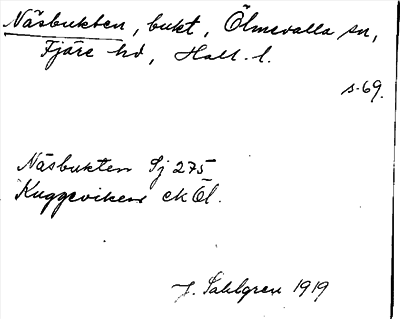 Näsbukten, bukt, Ölmevalla sn,
Fjäre hd, Hall. l.
s. 69.
Näsbukten Sj 275
Kuggeviken ek Öl.
J. Sahlgren 1919